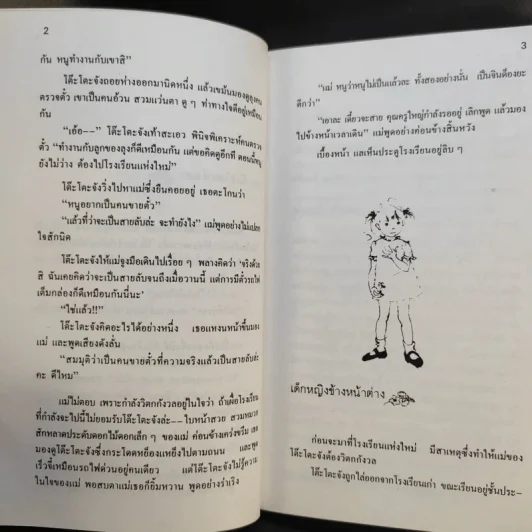 2
กัน หนูทำงานกับเขาสิ”
โต๊ะโตะจังถอยห่างออกมานิดหนึ่ง แล้วเขม้นมองดูลุงคน
ตรวจตั๋ว เขาเป็นคนอ้วน สวมแว่นตา ดู ๆ ท่าทางใจดีอยู่เหมือน
กัน
“เอ้อ--” โต๊ะโตะจังเท้าสะเอว พินิจพิเคราะห์คนตรวจ
ตั๋ว “ทำงานกับลูกของลุงก็ดีเหมือนกัน แต่ขอคิดดูอีกที ตอนนี้หนู
ยังไม่ว่าง ต้องไปโรงเรียนแห่งใหม่”
โต๊ะโตะจังวิ่งไปหาแม่ซึ่งยืนคอยอยู่ เธอตะโกนว่า
“หนูอยากเป็นคนขายตั๋ว”
“แล้วที่ว่าจะเป็นสายลับล่ะ จะทำยังไง” แม่พูดอย่างไม่แปลก
ใจสักนิด
โต๊ะโตะจังให้แม่จูงมือเดินไปเรื่อย ๆ พลางคิดว่า ‘จริงด้วย
สิ ฉันเคยคิดว่าจะเป็นสายลับจนถึงเมื่อวานนี้ แต่การมีตั๋วรถไฟ
เต็มกล่องก็ดีเหมือนกันนี่นะ’
“ใช่แล้ว!!”
โต๊ะโตะจังคิดอะไรได้อย่างหนึ่ง เธอแหงนหน้าขึ้นมอง
แม่ และพูดเสียงดังลั่น
“สมมุติว่าเป็นคนขายตั๋วที่ความจริงแล้วเป็นสายลับล่ะ
คะ ดีไหม”
แม่ไม่ตอบ เพราะกำลังวิตกกังวลอยู่ในใจว่า ถ้าเผื่อโรงเรียน
ที่กำลังจะไปนี้ไม่ยอมรับโต๊ะโตะจังล่ะ--ใบหน้าสวย สวมหมวก
สักหลาดประดับดอกไม้ดอกเล็ก ๆ ของแม่ ค่อนข้างเคร่งขรึม เธอ
มองดูโต๊ะโตะจังซึ่งกระโดดหย็องแหย็งไปตามถนน และพูด
เร็วจี๋เหมือนรถไฟด่วนอยู่คนเดียว แต่โต๊ะโตะจังไม่รู้ความ
ในใจของแม่ พอสบตาแม่เธอก็ยิ้มหวาน พูดอย่างร่าเริง
3
“แม่ หนูว่าหนูไม่เป็นแล้วละ ทั้งสองอย่างนั่น เป็นจินด็องยะ
ดีกว่า”
“เอาละ เดี๋ยวจะสาย คุณครูใหญ่กำลังรออยู่ เลิกพูด แล้วมอง
ไปข้างหน้าเวลาเดิน” แม่พูดอย่างค่อนข้างสิ้นหวัง
เบื้องหน้า แลเห็นประตูโรงเรียนอยู่ลิบ ๆ
เด็กหญิงข้างหน้าต่าง
ก่อนจะมาที่โรงเรียนแห่งใหม่ มีสาเหตุซึ่งทำให้แม่ของ
โต๊ะโตะจังต้องวิตกกังวล
โต๊ะโตะจังถูกไล่ออกจากโรงเรียนเก่า ขณะเรียนอยู่ชั้นประ-